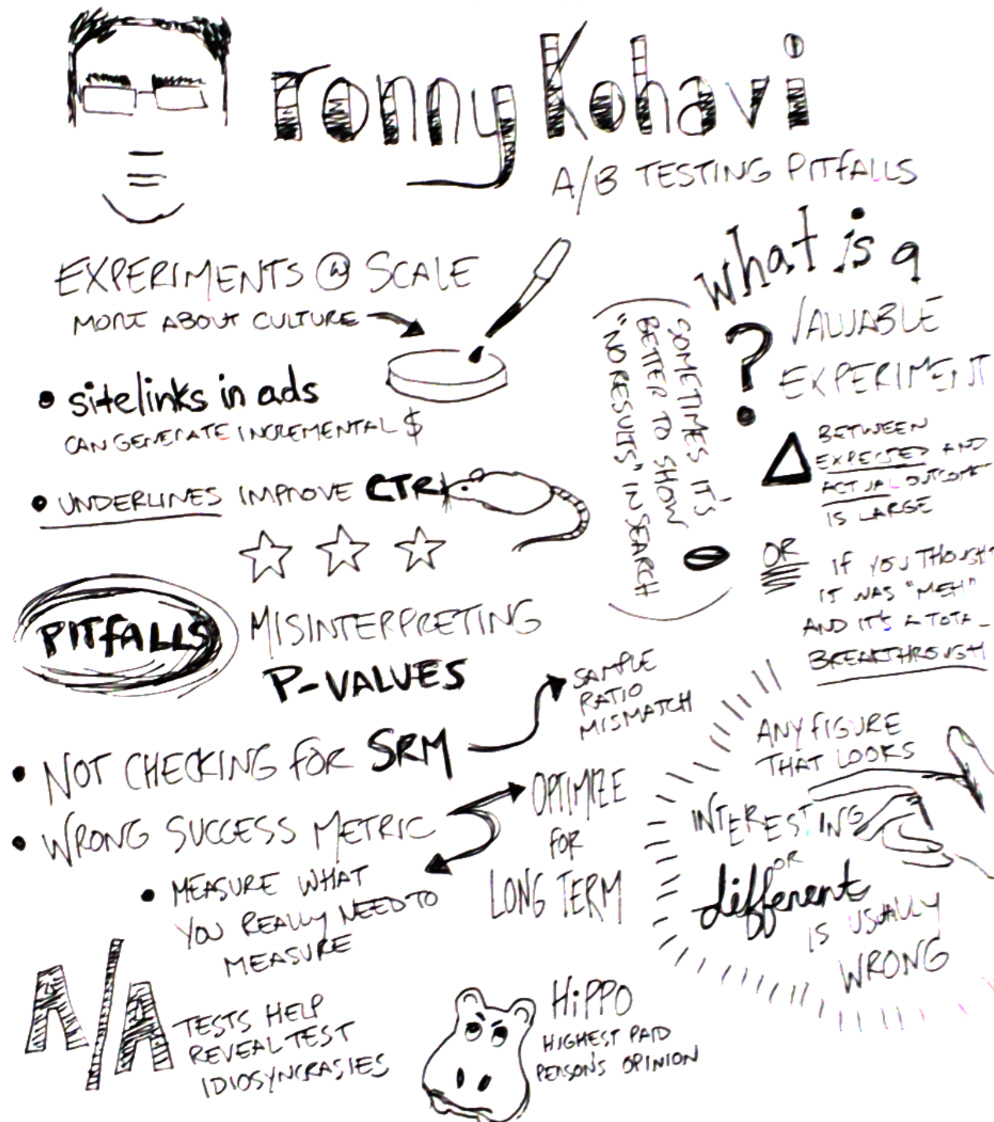 ronny Kohavi
A/B TESTING PITFALLS
EXPERIMENTS @ SCALE
MORE ABOUT CULTURE
• sitelinks in ads
CAN GENERATE INCREMENTAL $
• UNDERLINES IMPROVE CTR
what is a
VALUABLE
EXPERIMENT
?
Δ BETWEEN
EXPECTED AND
ACTUAL OUTCOME
IS LARGE
OR
IF YOU THOUGHT
IT WAS "MEH"
AND IT'S A TOTAL
BREAKTHROUGH
(SOMETIMES IT'S
BETTER TO SHOW
"NO RESULTS" IN SEARCH)
PITFALLS
MISINTERPRETING
P-VALUES
• NOT CHECKING FOR SRM
SAMPLE
RATIO
MISMATCH
• WRONG SUCCESS METRIC
OPTIMIZE
FOR
LONG TERM
• MEASURE WHAT
YOU REALLY NEED TO
MEASURE
ANY FIGURE
THAT LOOKS
INTERESTING
OR
different
IS USUALLY
WRONG
A/A
TESTS HELP
REVEAL TEST
IDIOSYNCRASIES
HiPPO
HIGHEST PAID
PERSON'S OPINION